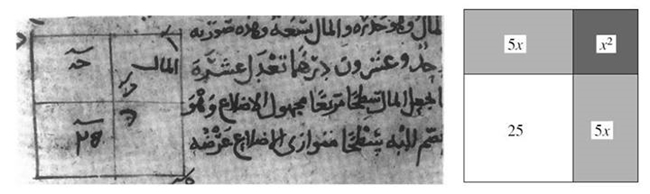 المال وهو جذره والمال تسعة وهذه صورته
وعشرون درهما تعدل عشرة
المال سطحا مربعا مجهول الاضلاع وهو
نضم اليه سطحا متوازى الاضلاع عرضه
المال
٢٥
5x x²
25 5x